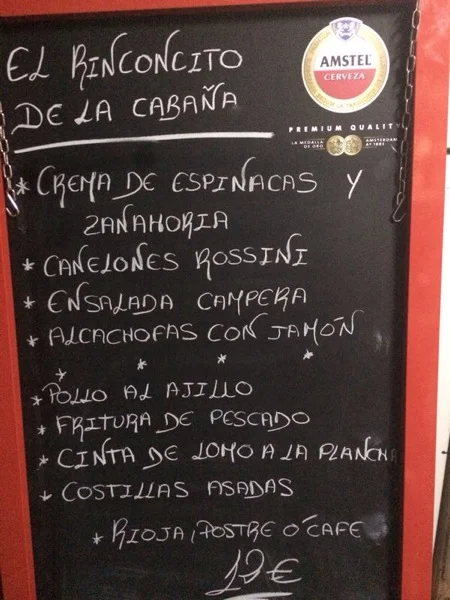 EL RINCONCITO
DE LA CABAÑA
AMSTEL
CERVEZA
PREMIUM QUALITY
LA MEDALLA
DE ORO
* CREMA DE ESPINACAS Y
ZANAHORIA
* CANELONES ROSSINI
* ENSALADA CAMPERA
* ALCACHOFAS CON JAMÓN
* * * *
* POLLO AL AJILLO
* FRITURA DE PESCADO
* CINTA DE LOMO A LA PLANCHA
* COSTILLAS ASADAS
* RIOJA, POSTRE O´CAFE